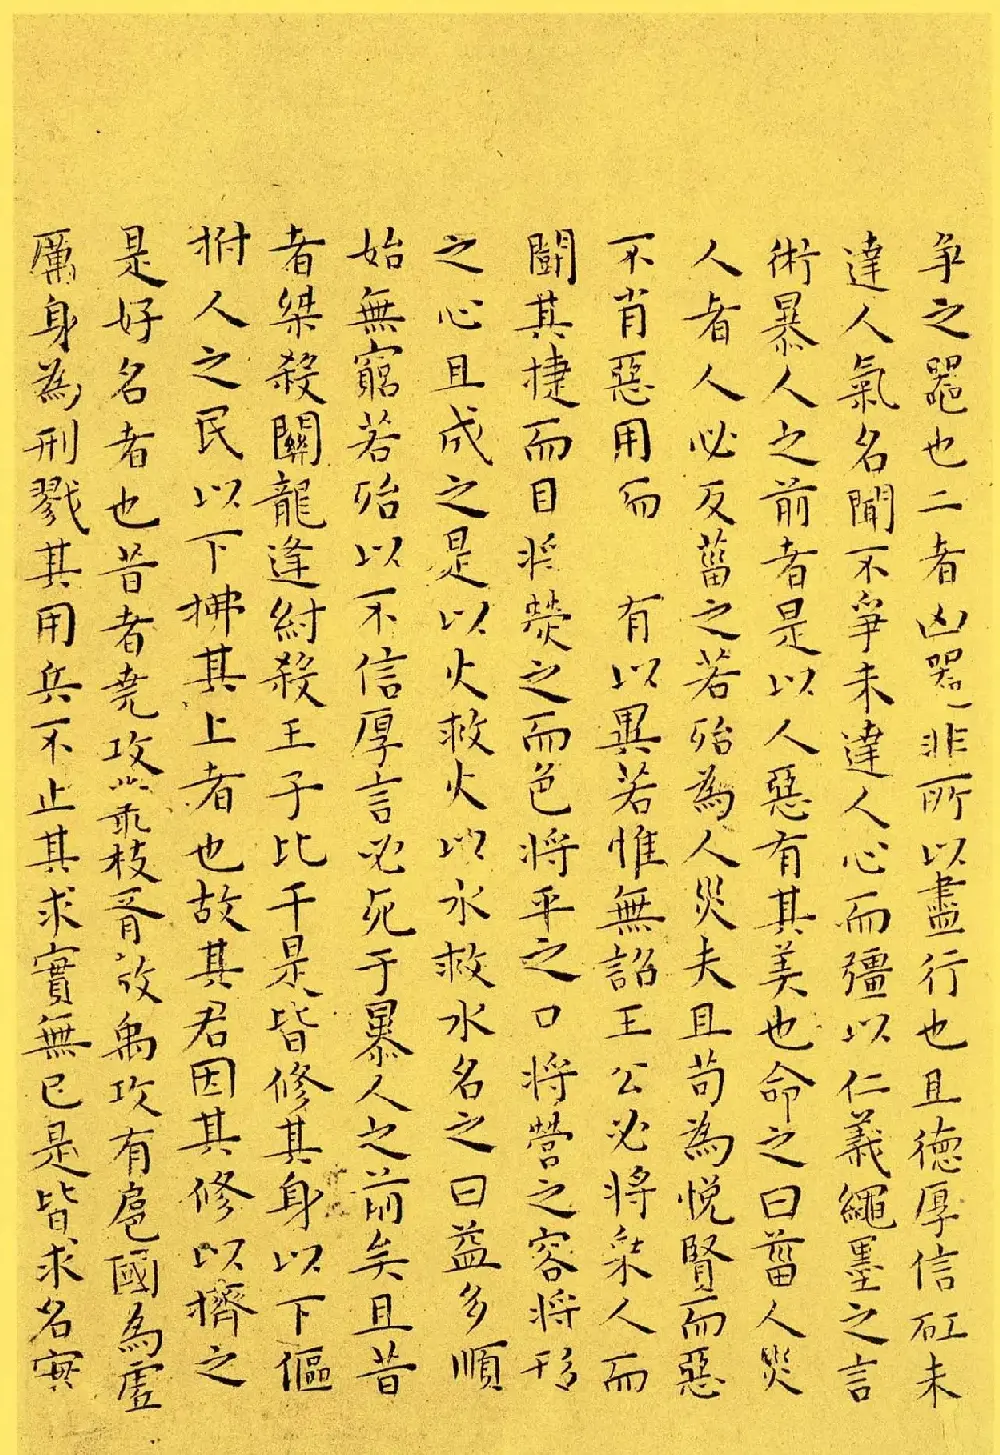 争之器也二者凶器非所以盡行也且德厚信矼未
達人氣名聞不爭未達人心而彊以仁義繩墨之言
術暴人之前者是以人惡有其美也命之曰菑人菑
人者人必反菑之若殆為人災夫且苟為悅賢而惡
不肖惡用而 有以異若惟無詔王公必將乘人而
鬪其捷而目将熒之而色将平之口将營之容将形
之心且成之是以火救火以水救水名之曰益多順
始無窮若殆以不信厚言必死于暴人之前矣且昔
者桀殺關龍逢紂殺王子比干是皆修其身以下傴
拊人之民以下拂其上者也故其君因其修以擠之
是好名者也昔者堯攻叢枝胥敖禹攻有扈國為虛
厲身為刑戮其用兵不止其求實無已是皆求名實